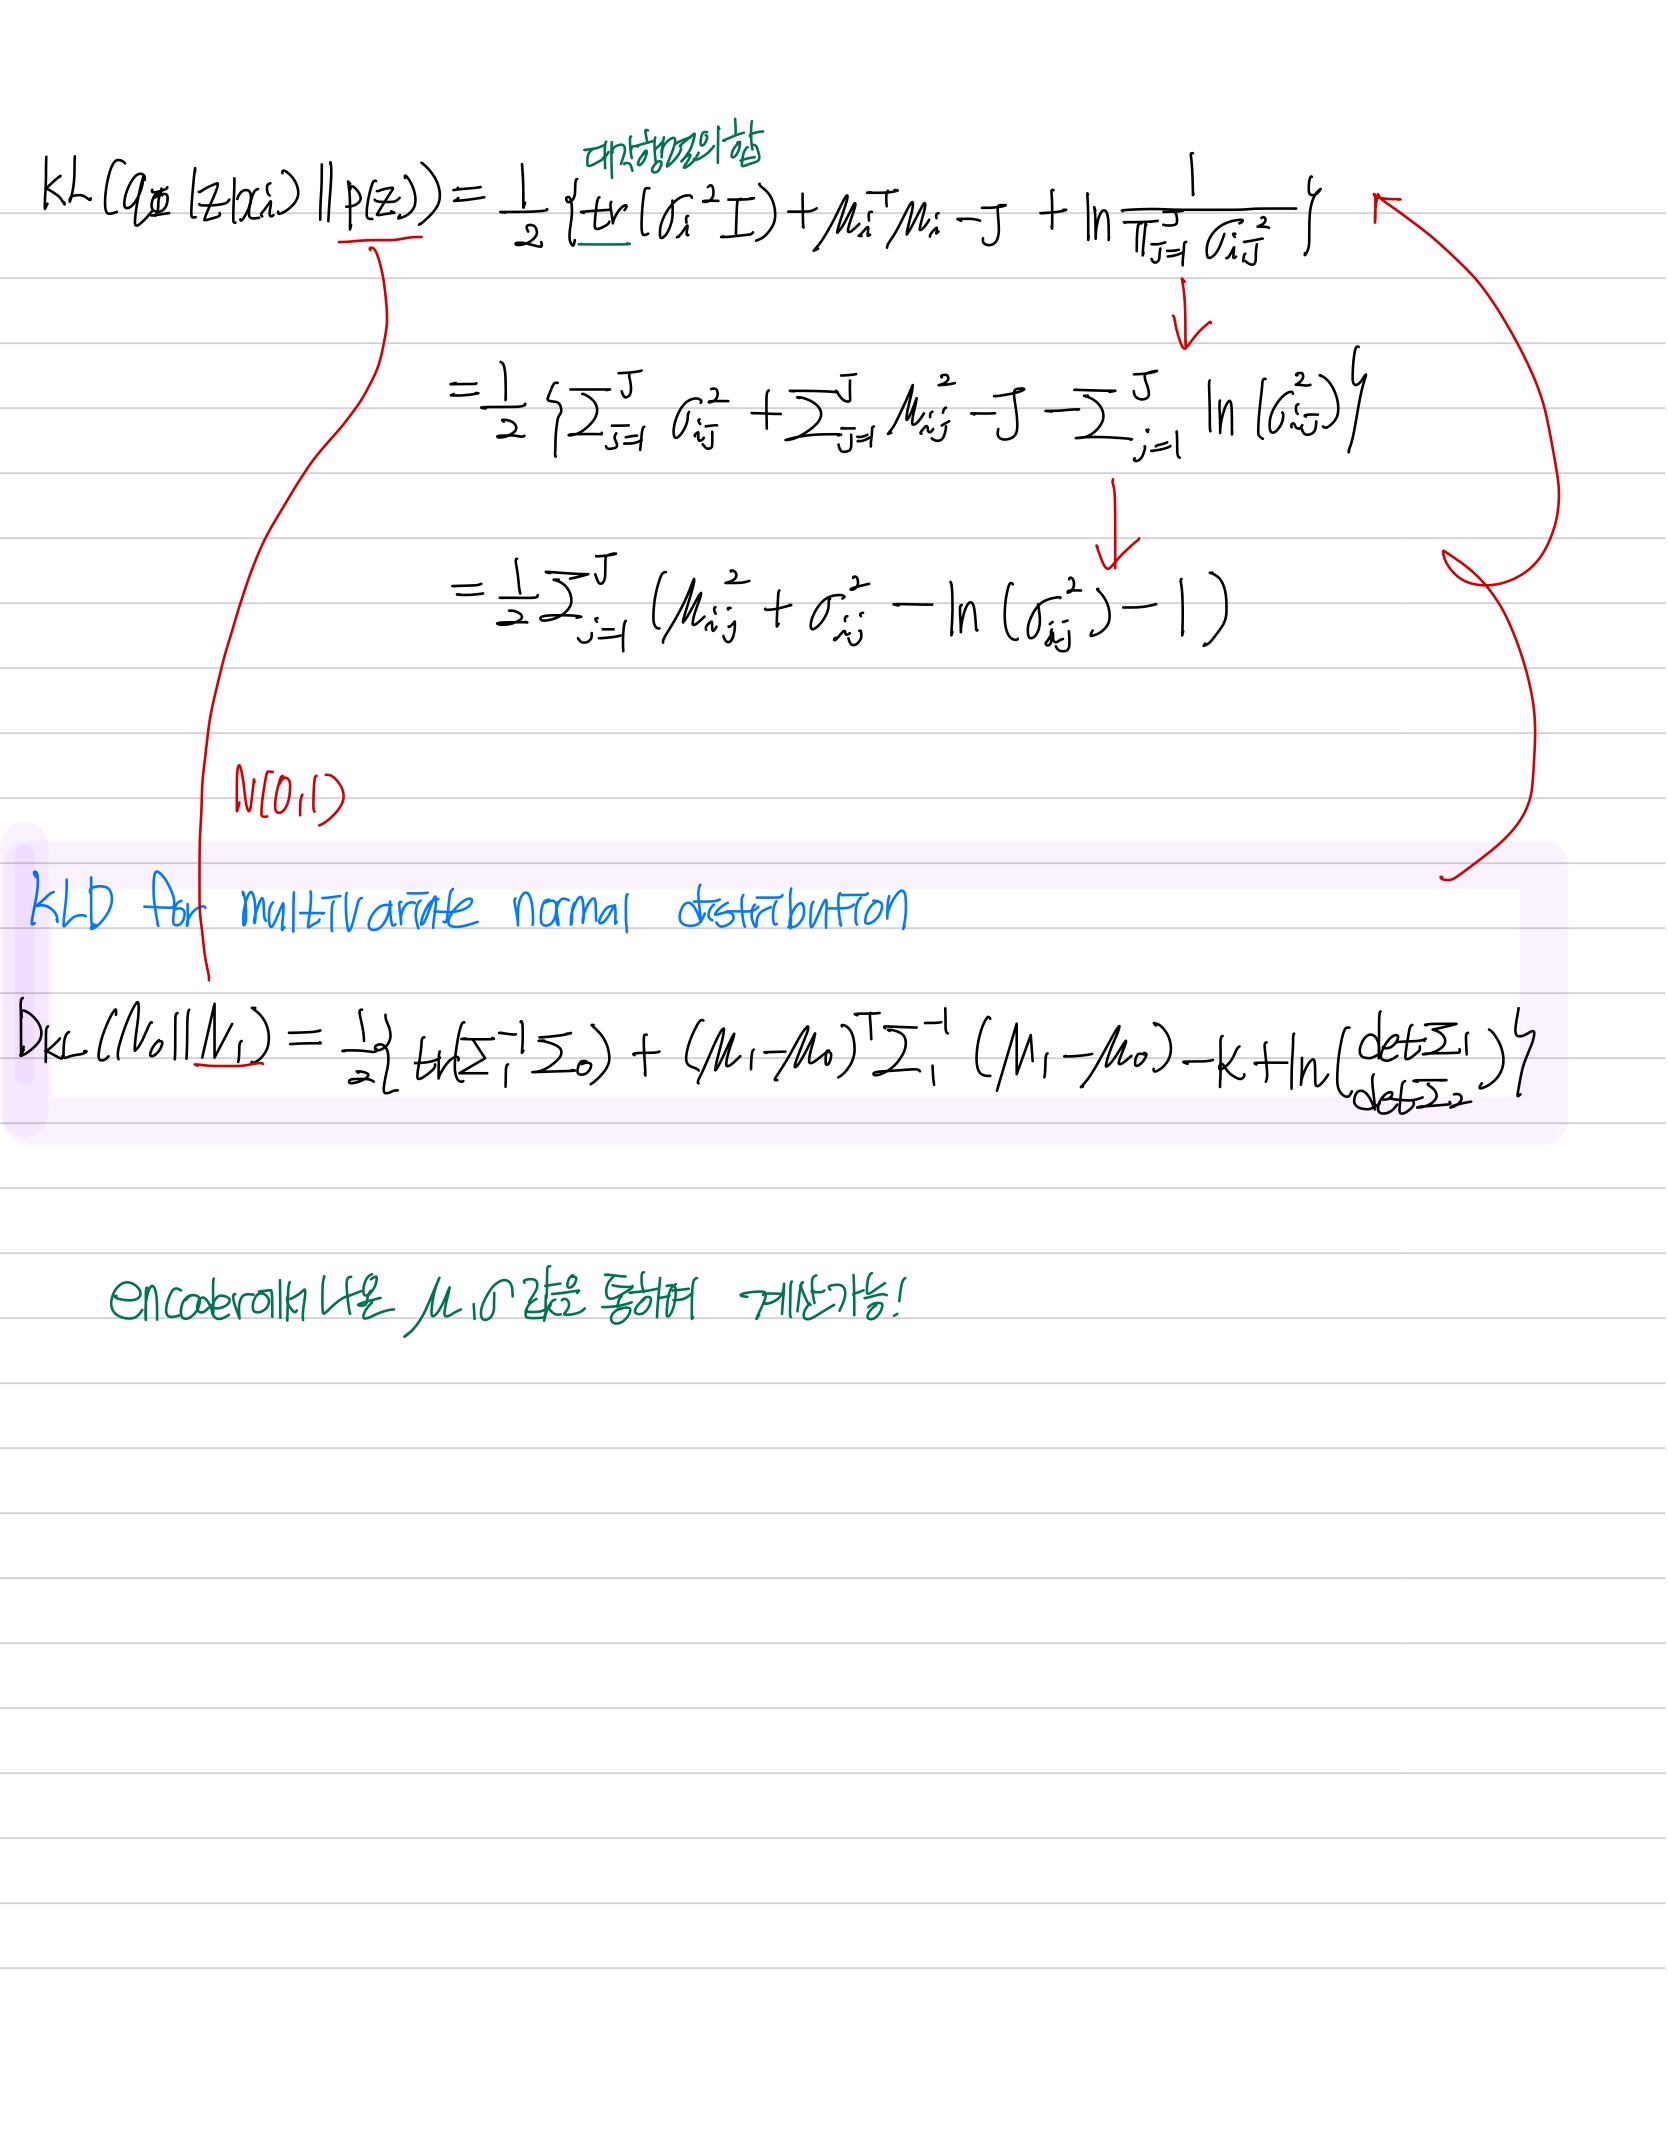 대각행렬의 합
KL(qΦ(z|xi) || p(z)) = 1/2 {tr(σi²I) + μiᵀμi - J + ln 1/(Π_{J=1}^J σ_{iJ}²)}
= 1/2 {Σ_{J=1}^J σ_{ij}² + Σ_{J=1}^J μ_{ij}² - J - Σ_{j=1}^J ln(σ_{ij}²)}
= 1/2 Σ_{j=1}^J (μ_{ij}² + σ_{ij}² - ln(σ_{ij}²) - 1)
N(0,1)
KLD for multivariate normal distribution
D_{KL}(N₀||N₁) = 1/2{tr(Σ₁⁻¹Σ₀) + (μ₁-μ₀)ᵀΣ₁⁻¹(μ₁-μ₀) - K + ln(detΣ₁/detΣ₂)}
encoder에서 나온 μ, σ 값을 통하여 계산가능!